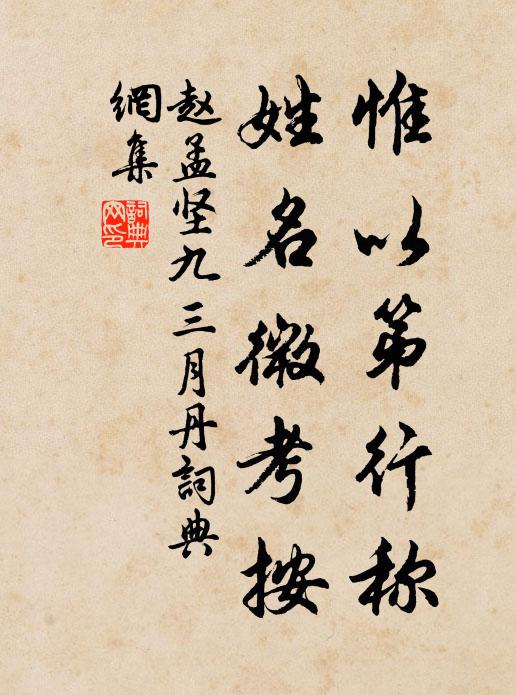 惟以第行称
姓名微考按
赵孟坚九三月丹詞典
網集
詞典
网印